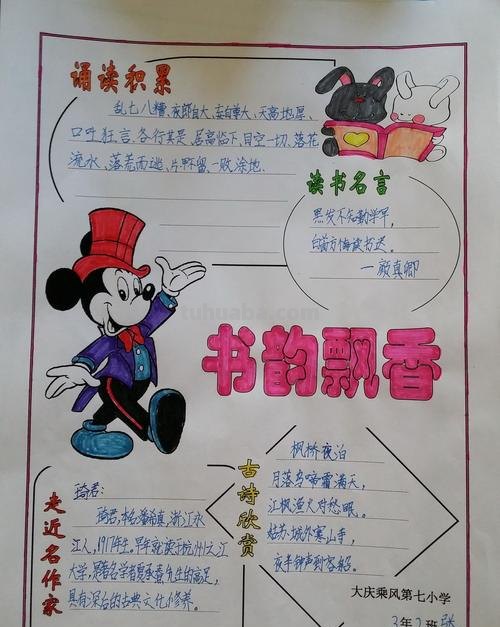 诵读积累
乱七八糟、夜郎自大、妄自尊大、天高地厚、
口吐狂言、各行其是、居高临下、目空一切、落花
流水、落荒而逃、片甲不留、一败涂地.
读书名言
黑发不知勤学早,
白首方悔读书迟。
一颜真卿
tuhuaba.com
书韵飘香
走近名作家
琦君:
琦君,本名潘希真,浙江永
江人,1917年生,早年就读于杭州之江
大学,是著名学者夏承焘先生的高足,
具有深后的古典文化修养。
古诗欣赏
枫桥夜泊
月落乌啼霜满天,
江枫渔火对愁眠。
姑苏城外寒山寺,
夜半钟声到客船。
大庆乘风第七小学
3年2班 张